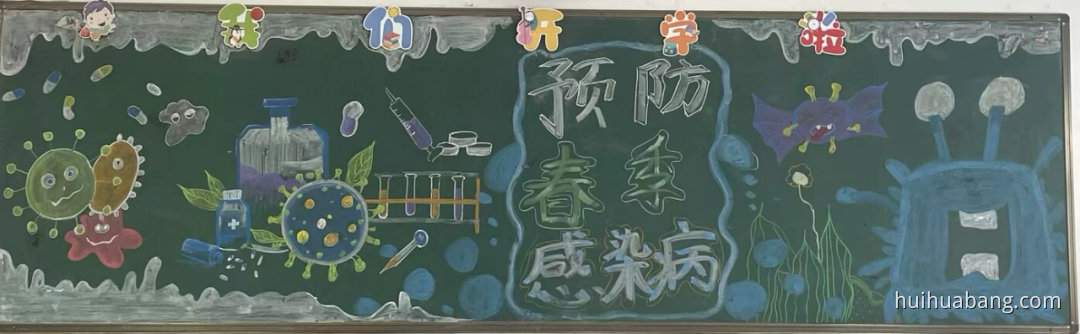 我们开学啦
预防
春季
感染病
huihuabang.com